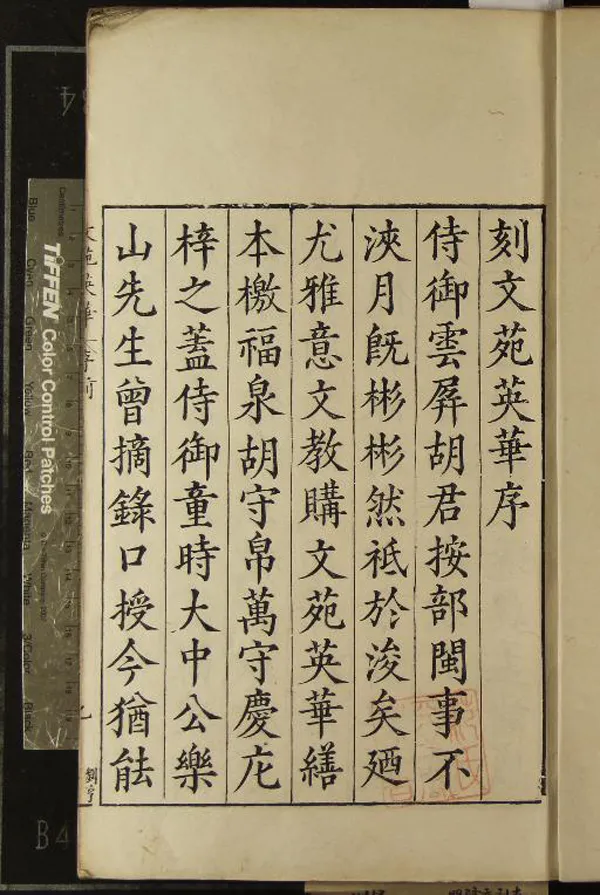 刻文苑英華序
侍御雲屏胡君按部閩事不
浹月旣彬彬然祗於浚矣廼
尤雅意文教購文苑英華繕
本檄福泉胡守帛萬守慶庀
梓之蓋侍御童時大中公樂
山先生曾摘錄口授今猶能
文苑英華 序
TIFFEN Color Control Patches
Centimetres
Blue
Cyan
Green
Yellow
Red
Magenta
White
3/Color
Black
B4